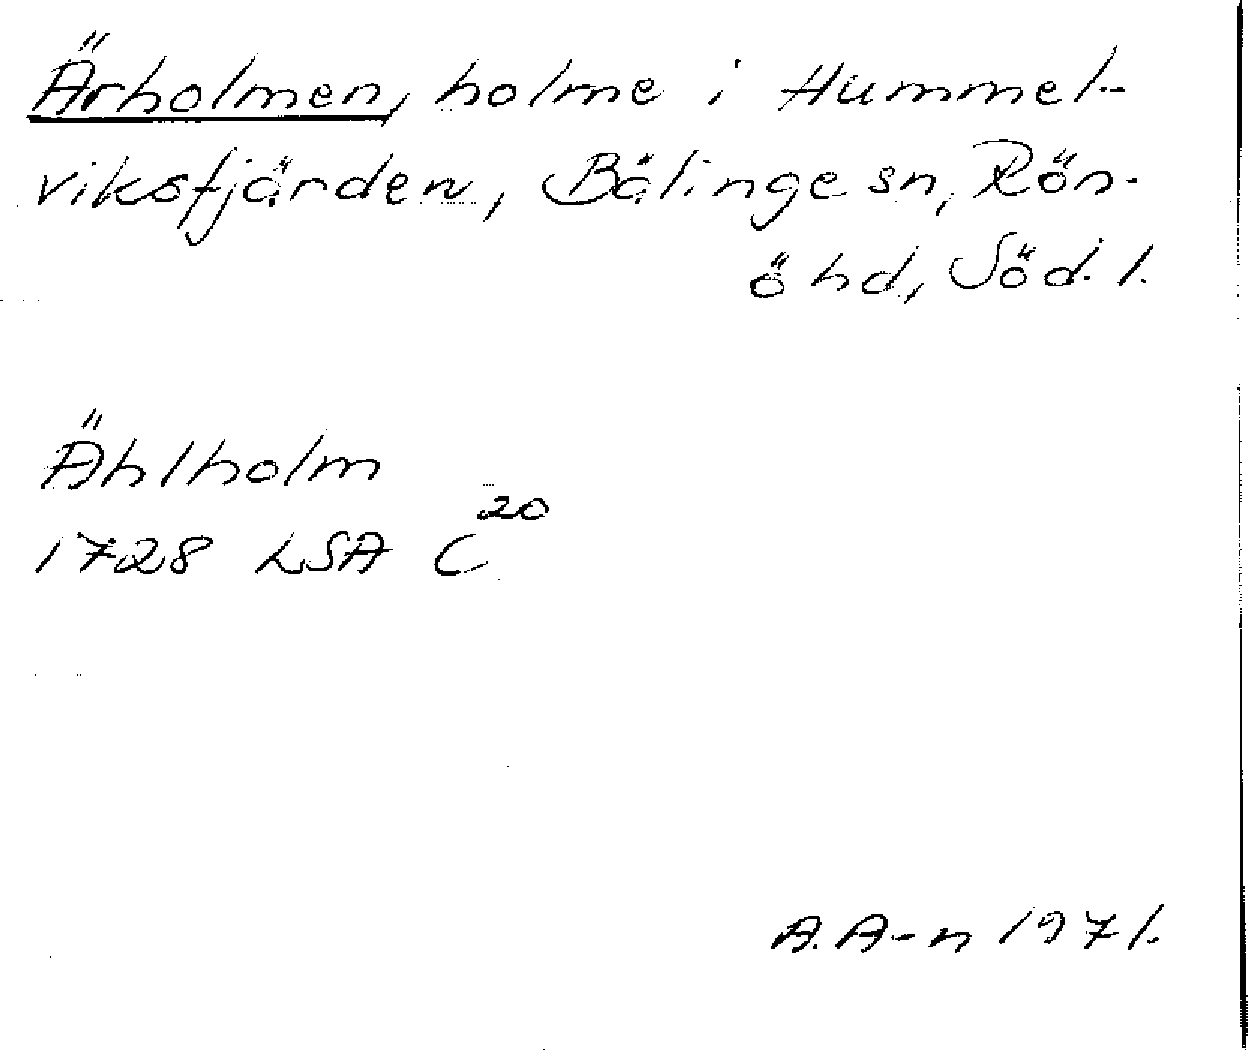 Ärholmen, holme i Hummel-
viksfjärden, Bälinge sn, Rön-
ö hd, Söd. l.
Ählholm
1728 LSA C²⁰
A. A-n 1971.